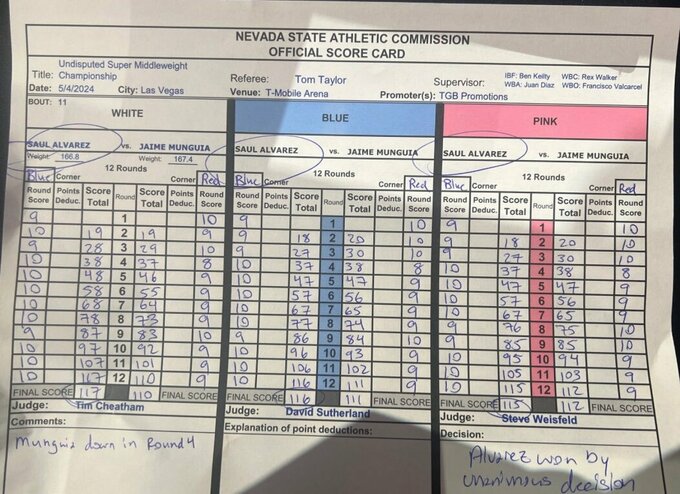 NEVADA STATE ATHLETIC COMMISSION
OFFICIAL SCORE CARD
Title: Undisputed Super Middleweight Championship
Referee: Tom Taylor
Supervisor: IBF: Ben Keilty WBC: Rex Walker
WBA: Juan Diaz WBO: Francisco Valcarcel
Date: 5/4/2024 City: Las Vegas Venue: T-Mobile Arena Promoter(s): TGB Promotions
BOUT: 11
WHITE BLUE PINK
SAUL ALVAREZ vs. JAIME MUNGUIA SAUL ALVAREZ vs. JAIME MUNGUIA SAUL ALVAREZ vs. JAIME MUNGUIA
Weight: 166.8 Weight: 167.4
12 Rounds 12 Rounds 12 Rounds
Blue Corner Corner Red Blue Corner Corner Red Blue Corner Corner Red
Round Score Points Deduc. Score Total Round Score Total Points Deduc. Round Score Round Score Points Deduc. Score Total Round Score Total Points Deduc. Round Score Round Score Points Deduc. Score Total Round Score Total Points Deduc. Round Score
9 1 10 9 1 10 9 1 10
10 19 2 19 9 9 18 2 20 10 9 18 2 20 10
9 28 3 29 10 9 27 3 30 10 9 27 3 30 10
10 38 4 37 8 10 37 4 38 8 10 37 4 38 8
10 48 5 46 9 10 47 5 47 9 10 47 5 47 9
10 58 6 55 9 10 57 6 56 9 10 57 6 56 9
10 68 7 64 9 10 67 7 65 9 10 67 7 65 9
10 78 8 73 9 10 77 8 74 9 9 76 8 75 10
9 87 9 83 10 9 86 9 84 10 9 85 9 85 10
10 97 10 92 9 10 96 10 93 9 10 95 10 94 9
10 107 11 101 9 10 106 11 102 9 10 105 11 103 9
10 117 12 110 9 10 116 12 111 9 10 115 12 112 9
FINAL SCORE 117 110 FINAL SCORE FINAL SCORE 116 111 FINAL SCORE FINAL SCORE 115 112 FINAL SCORE
Judge: Tim Cheatham Judge: David Sutherland Judge: Steve Weisfeld
Comments: Explanation of point deductions: Decision:
Munguia down in Round 4
Alvarez won by
unanimous decision